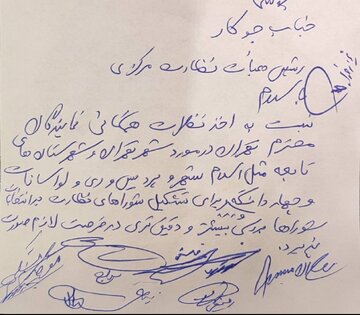 جناب جوکار
رئیس هیأت نظارت مرکزی
با سلام
نسبت به اخذ نظرات همگانی نمایندگان
محترم تهران در مورد شهر تهران و شهرستان های
تابعه مثل اسلامشهر و پردیس و ری و لواسانات
و چهاردانگه برای تشکیل شوراهای نظارت بر انتخابات
شوراها بررسی بیشتر و دقیق تری در فرصت لازم صورت
پذیرد